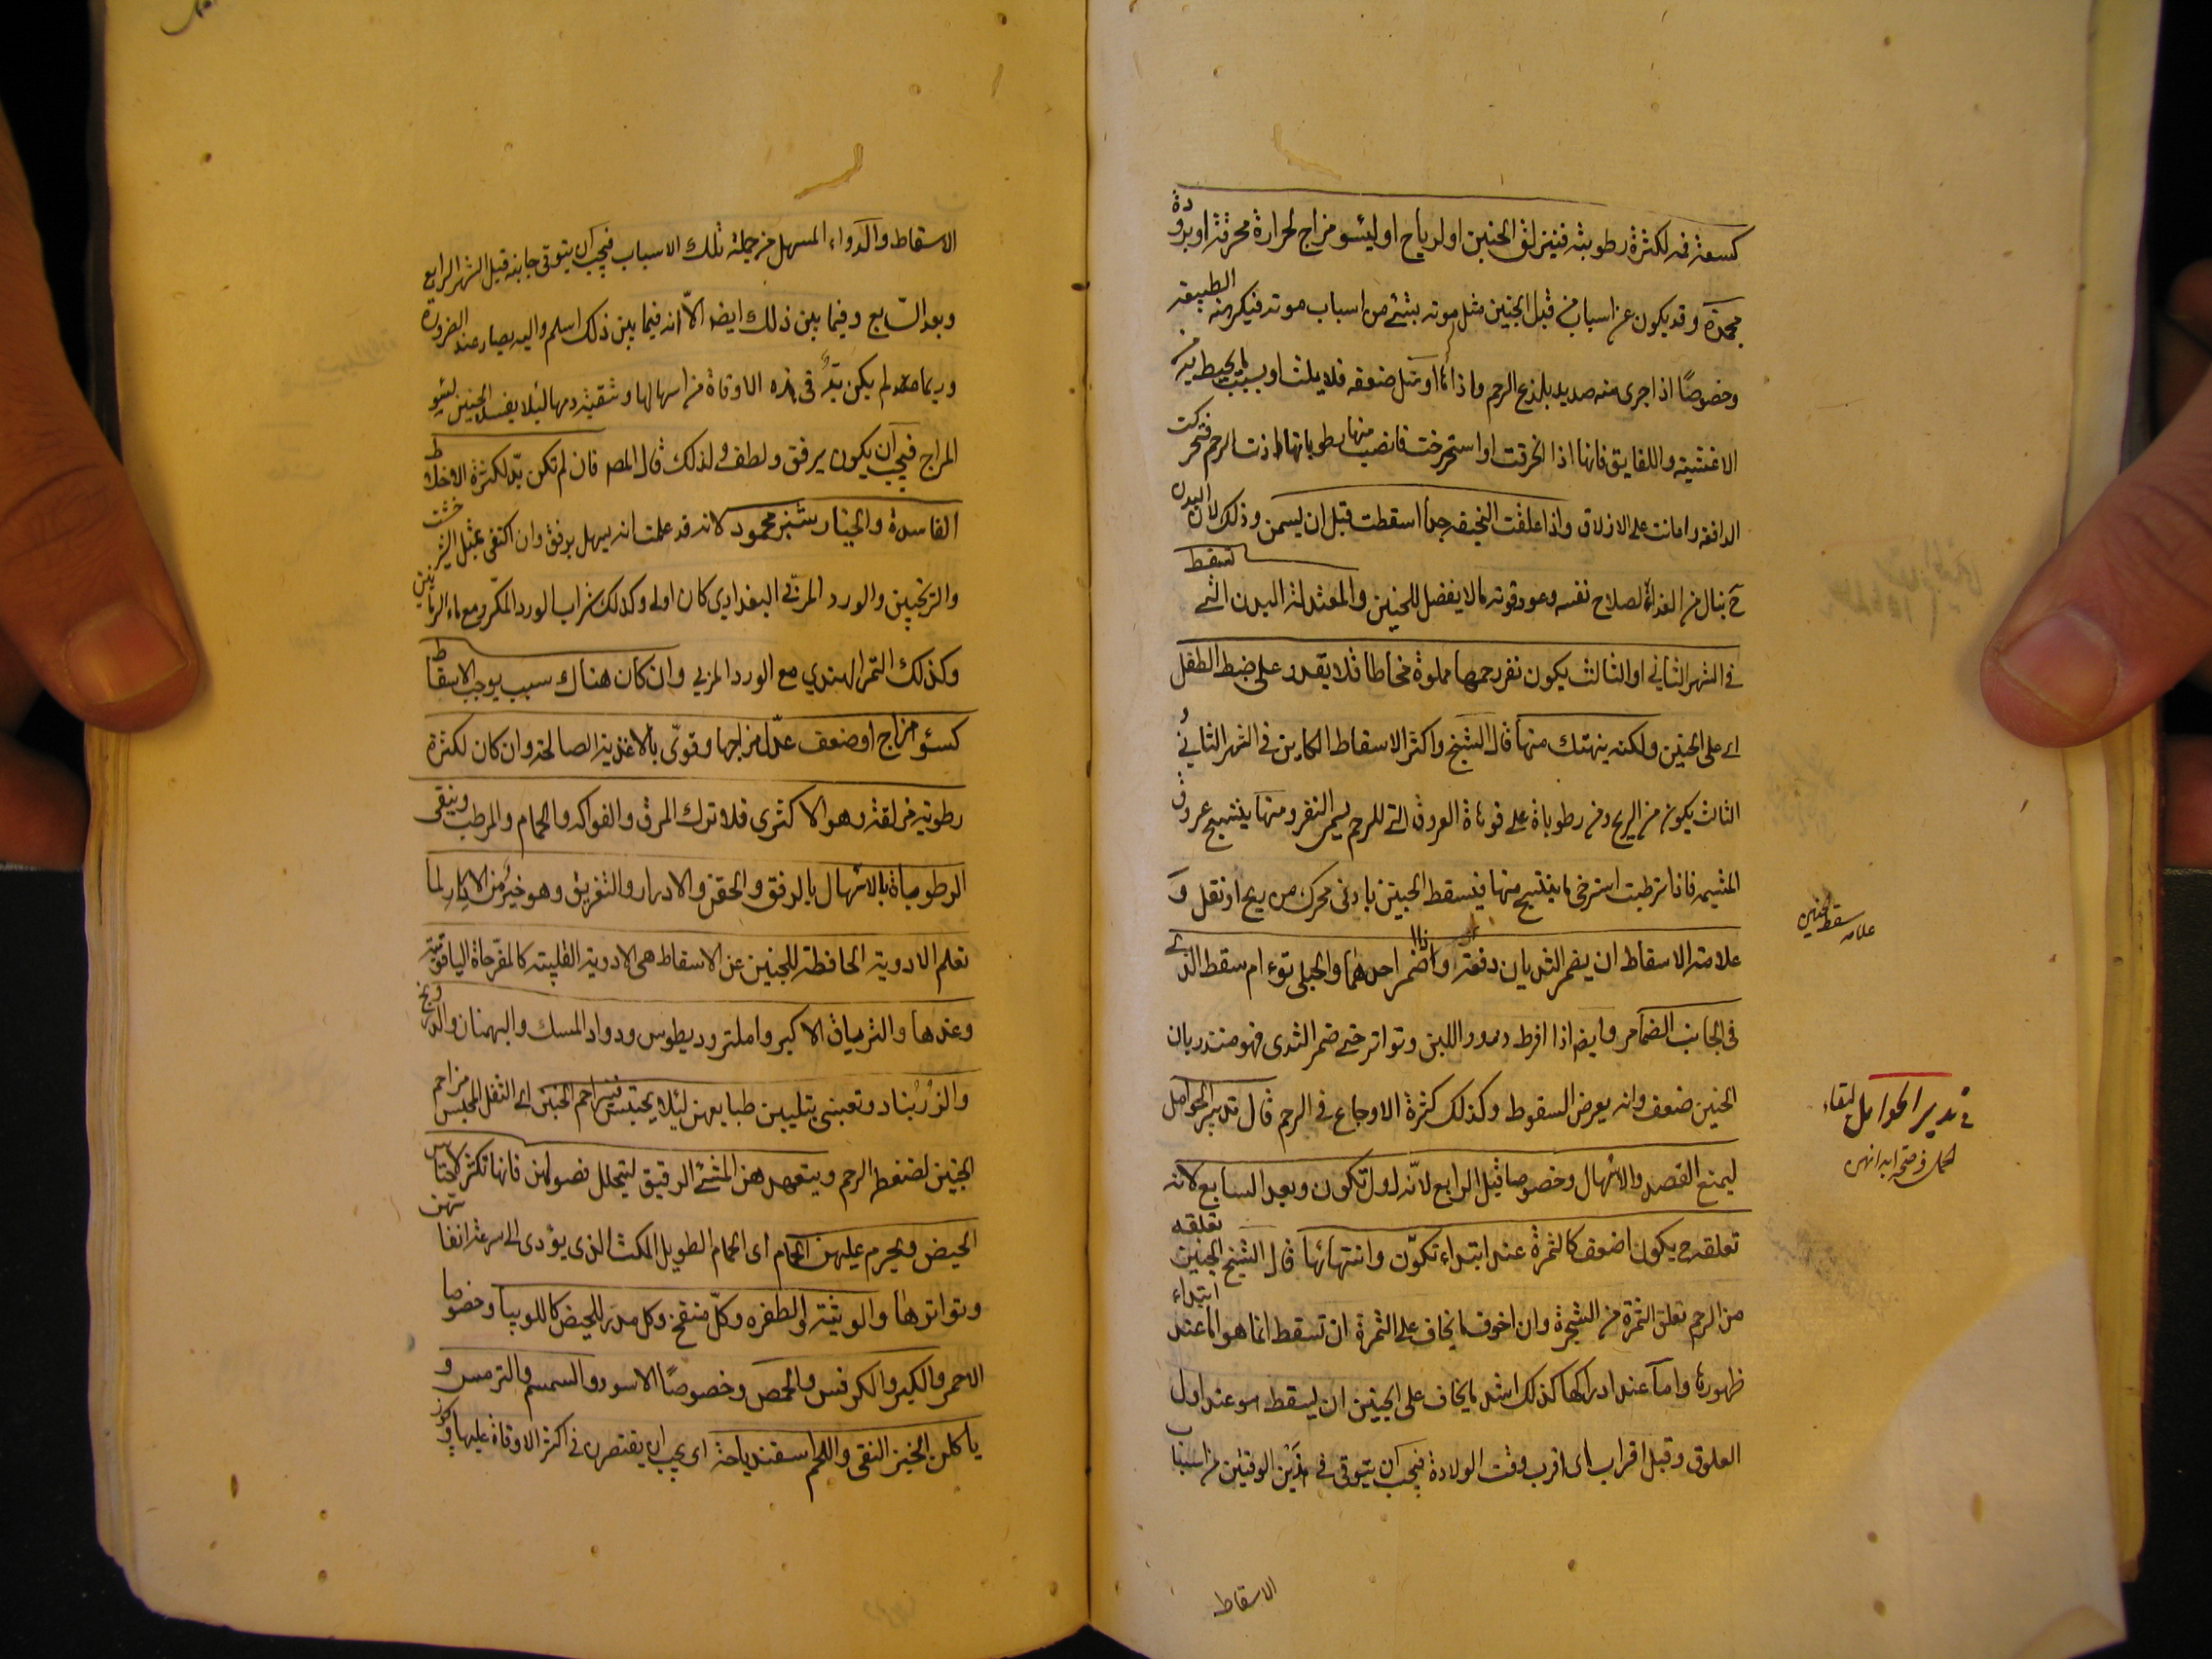 كسعة فمه لكثرة رطوبته فينزلق الجنين او لرياح او ليسو مزاج لحرارة محرقة او برودة
مجمدة وقد يكون عن اسباب من قبل الجنين مثل موته بشئ من اسباب موته فيكرهه الطبيعة
وخصوصًا اذا جرى منه صديد يلذع الرحم واذا او مثل ضعفه فلا يلبث او بسبب ما يحيط به من
الاغشية واللفايق فانها اذا انخرقت او استرخت فانصب منها رطوباتها اذت الرحم فتحركت
الدافعة واعانت على الازلاق واذا علقت النحيفة جدا اسقطت قبل ان يسمن وذلك لان البدن
ح ينال من الغذاء لصلاح نفسه وعود قوته ما لا يفضل للجنين والمعتدلة البدن التى تسقط
فى الشهر الثاني او الثالث يكون نقر رحمها مملوة مخاطا فلا يقدر على ضبط الطفل
اى على الجنين ولكنه ينهتك منها قال الشيخ واكثر الاسقاط الكاين فى الشهر الثاني و
الثالث يكون من الريح ومن رطوباة على فوهاة العروق التى للرحم يسمى النقر ومنها ينتسج عروق
المشيمه فاذا ترطبت استرخى ما ينتسج منها فيسقط الجنين بادنى محرك من ريح او ثقل و
علامة الاسقاط ان يضمر الثديان دفعة واذا ضمر احدهما والحبلى توءم سقط الذى
فى الجانب الضامر وايضه اذا افرط درور اللبن وتواتر حتى ضمر الثدى فهو منذر بان
الجنين ضعف وانه يعرض السقوط وكذلك كثرة الاوجاع فى الرحم قال تدبير الحوامل
ليمنع الفصد والاسهال وخصوصا قبل الرابع لانه اول تكون وبعد السابع لانه
تعلقه ح يكون اضعف كالثمرة عند ابتداء تكوّن وانتهائها قال الشيخ الجنين تعلقه
من الرحم تعلق الثمرة من الشجرة وان اخوف ما يخاف على الثمرة ان تسقط انما هو اما عند ابتداء
ظهورها واما عند ادراكها كذلك اشد ما يخاف على الجنين ان يسقط هو عند اول
العلوق وقبل اقراب اى اقرب وقت الولادة فيجب ان يتوقى فى هذين الوقتين من اسباب
علامه سقط جنين
فى تدبير الحوامل لبقاء
الحمل
الاسقاط
الاسقاط والدواء المسهل من جملة تلك الاسباب فيجب ان يتوقى جانبه قبل الشهر الرابع
وبعد السابع وفيما بين ذلك ايضه الا انه فيما بين ذلك اسلم واليه يصار عند الضرورة
وربما لم يكن بدٌّ فى هذه الاوقاة من اسهالها وتنقية دمها ليلا يفسد الجنين ليسو
المزاج فيجب ان يكون برفق ولطف ولذلك قال المصه فان لم تكن بد لكثرة الاخلاط
الفاسدة والخيار شنبر محمود لانه قد علمت انه يسهل برفق وان اكتفى بمثل الشيرخشت
والترنجبين والورد المربى البغدادي كان اولى وكذلك شراب الورد المكرر مع ماء الرمانين
وكذلك التمر الهندي مع الورد المربى وان كان هناك سبب يوجب الاسقاط
كسوء مزاج او ضعف عدّل مزاجها وقوّى بالاغذية الصالحة وان كان لكثرة
رطوبة مزلقة وهو الاكثرى فلا ترك المرق والفواكه والحمام والمرطب وينقى
الرطوباة بالاسهال بالرفق والحقن والادرار والتعريق وهو خير من الادرار لما
تعلم الادوية الحافظة للجنين عن الاسقاط هى الادوية القلبية كالمفرحاة الياقوتية
وغيرها والترياق الاكبر والمثروديطوس ودواء المسك والبهمنان والدرونج
والزرنباد وتعتنى بتليين طبايعهن ليلا يحتبس فيزاحم الجنين اى الثفل المحتبس مزاحم
الجنين لضغط الرحم ويتعهد هن المشئ الرقيق ليتحلل فضولهن فانها تكثر لاحتباس
الحيض ويحرم عليهن الحمام اى الحمام الطويل المكث الذى يؤدى الى سرعة انفاسهن
وتواترها والوثبة والطفره وكل منفخ وكل مدر للحيض كاللوبيا وخصوصا
الاحمر والكبر والكرفس والحمص وخصوصًا الاسود والسمسم والترمس و
ياكلن الخبز النقى واللحم اسفيدباجة اى يجب ان يقتصرن فى اكثر الاوقاة عليها